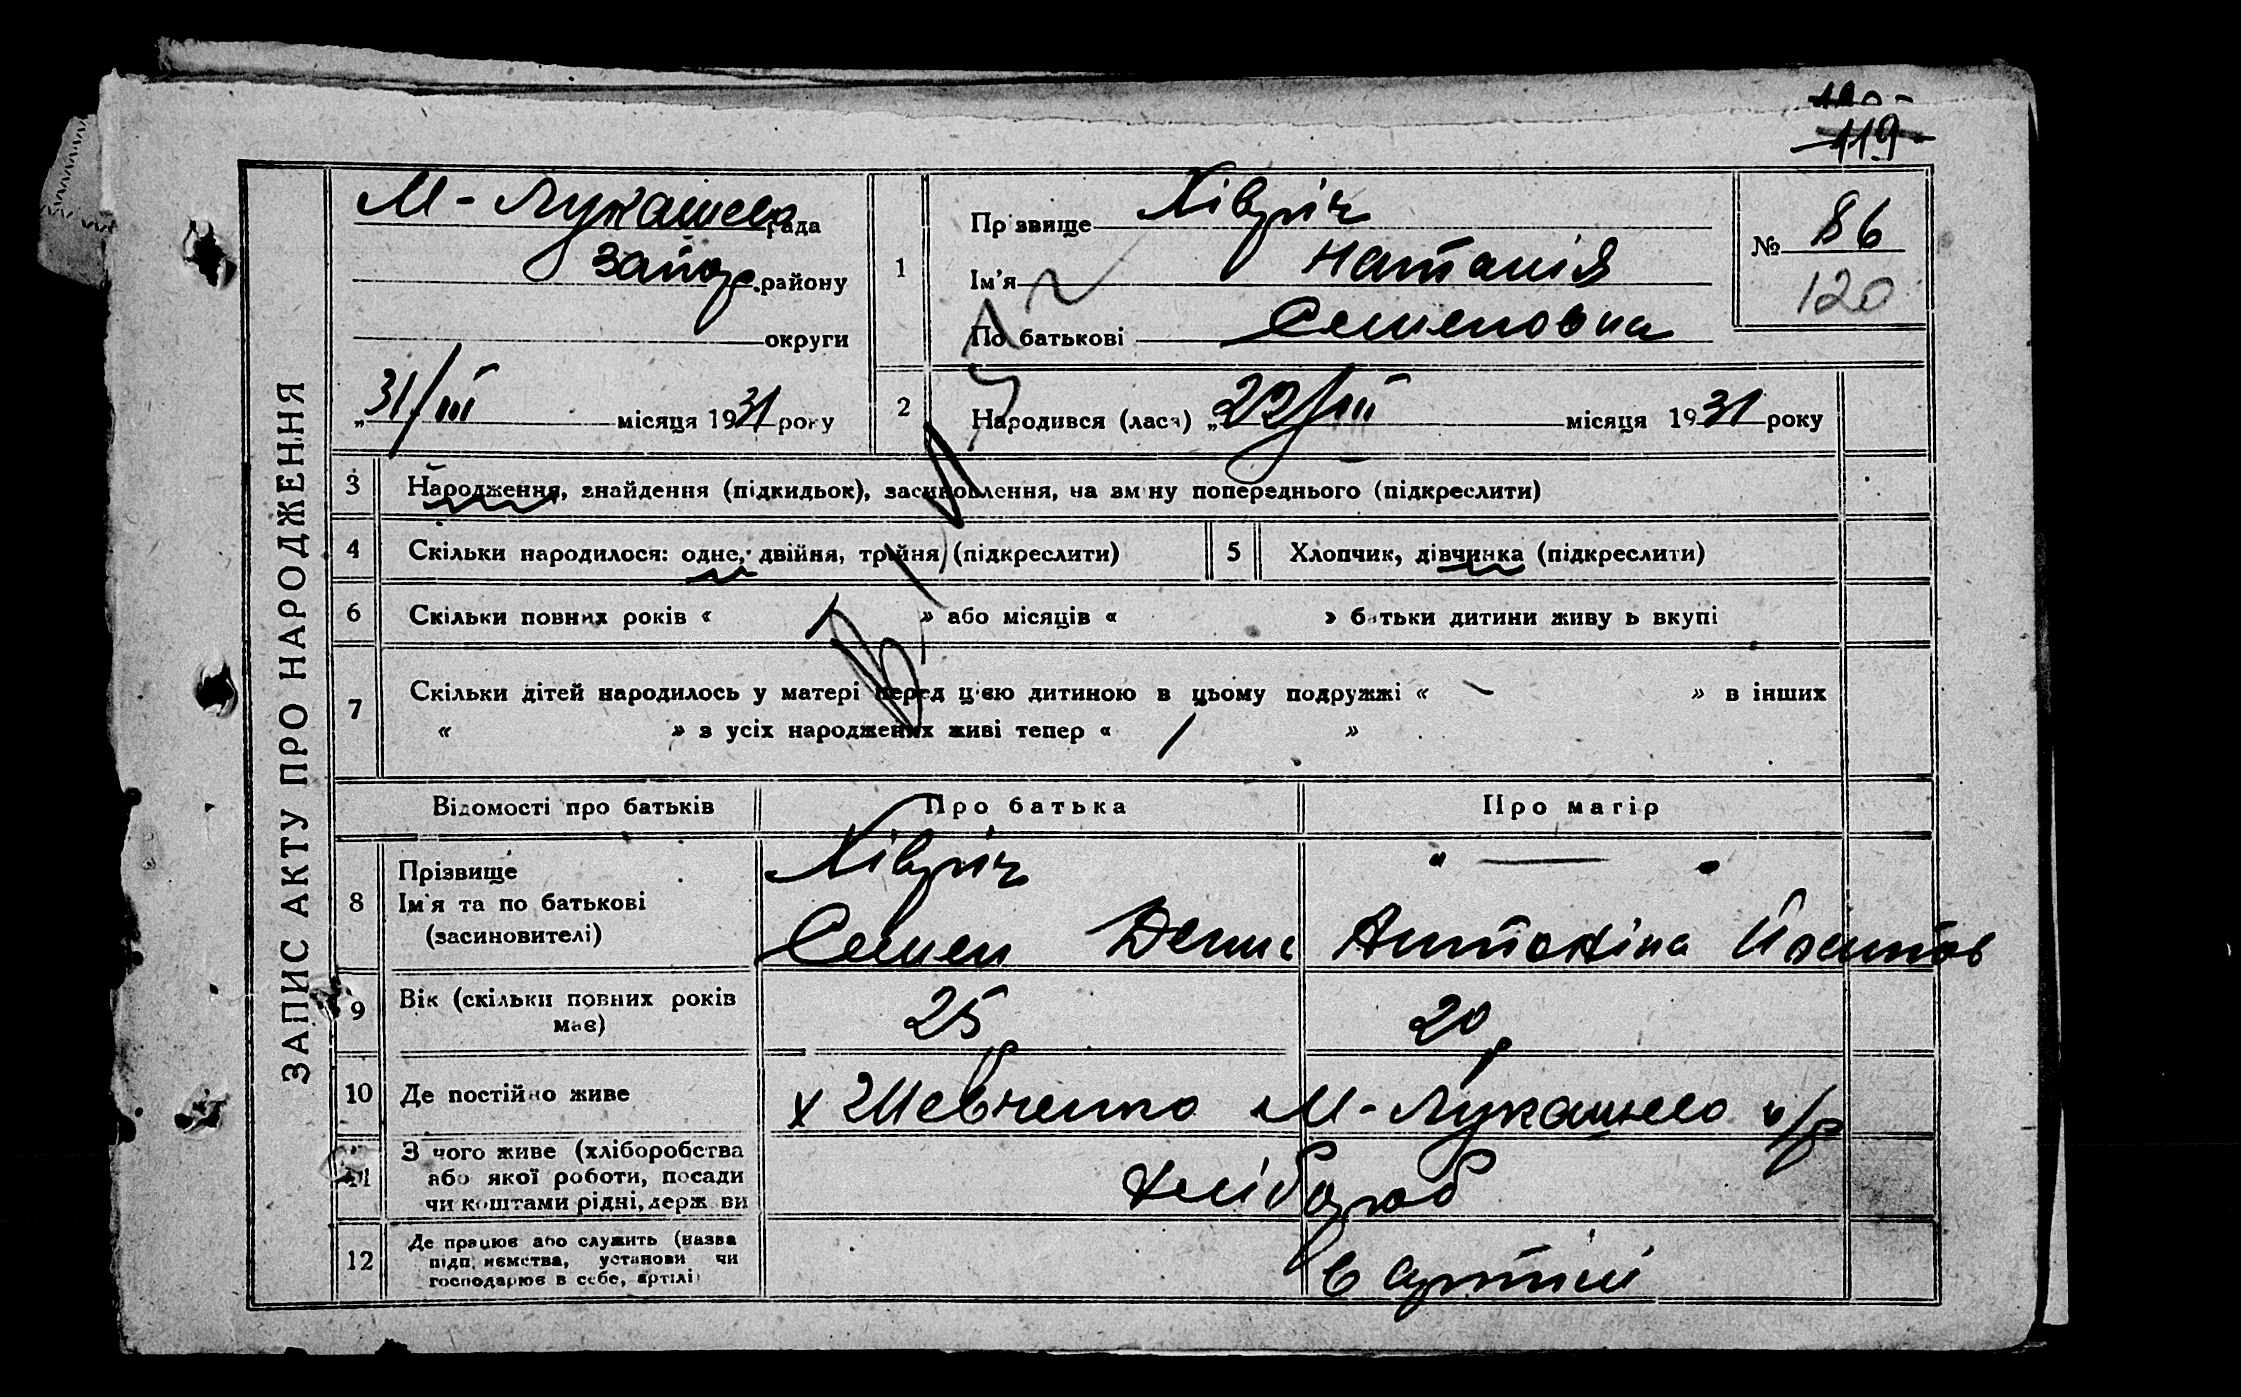 119
М-Лукашева рада
Запор. району
округи
„31/III місяця 1931 року
1
Прізвище Хівріч
Ім'я Наталія
По батькові Семеновна
№ 86
120
2
Народився (лась) „22/III місяця 1931 року
ЗАПИС АКТУ ПРО НАРОДЖЕННЯ
3 Народження, знайдення (підкидьок), засиновлення, на зміну попереднього (підкреслити)
4 Скільки народилося: одне, двійня, трійня (підкреслити)
5 Хлопчик, дівчинка (підкреслити)
6 Скільки повних років « » або місяців « » батьки дитини живуть вкупі
7 Скільки дітей народилось у матері перед цією дитиною в цьому подружжі « — » в інших
« » з усіх народжених живі тепер « »
Відомості про батьків Про батька Про матір
8 Прізвище
Ім'я та по батькові
(засиновителі)
Хівріч
Семен Денис
" — "
Антоніна
9 Вік (скільки повних років
має)
25 р
20 р
10 Де постійно живе
х Шевченко М-Лукашево с/р
11 З чого живе (хліборобства
або якої роботи, посади
чи коштами рідні, держави
хлібороб
12 Де працює або служить (назва
підприємства, установи чи
господарює в себе, артілі)
в артілі